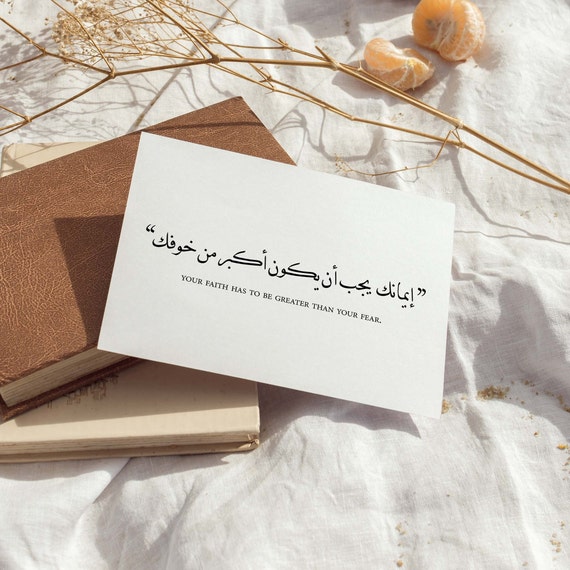 ”إيمانك يجب أن يكون أكبر من خوفك“
YOUR FAITH HAS TO BE GREATER THAN YOUR FEAR.